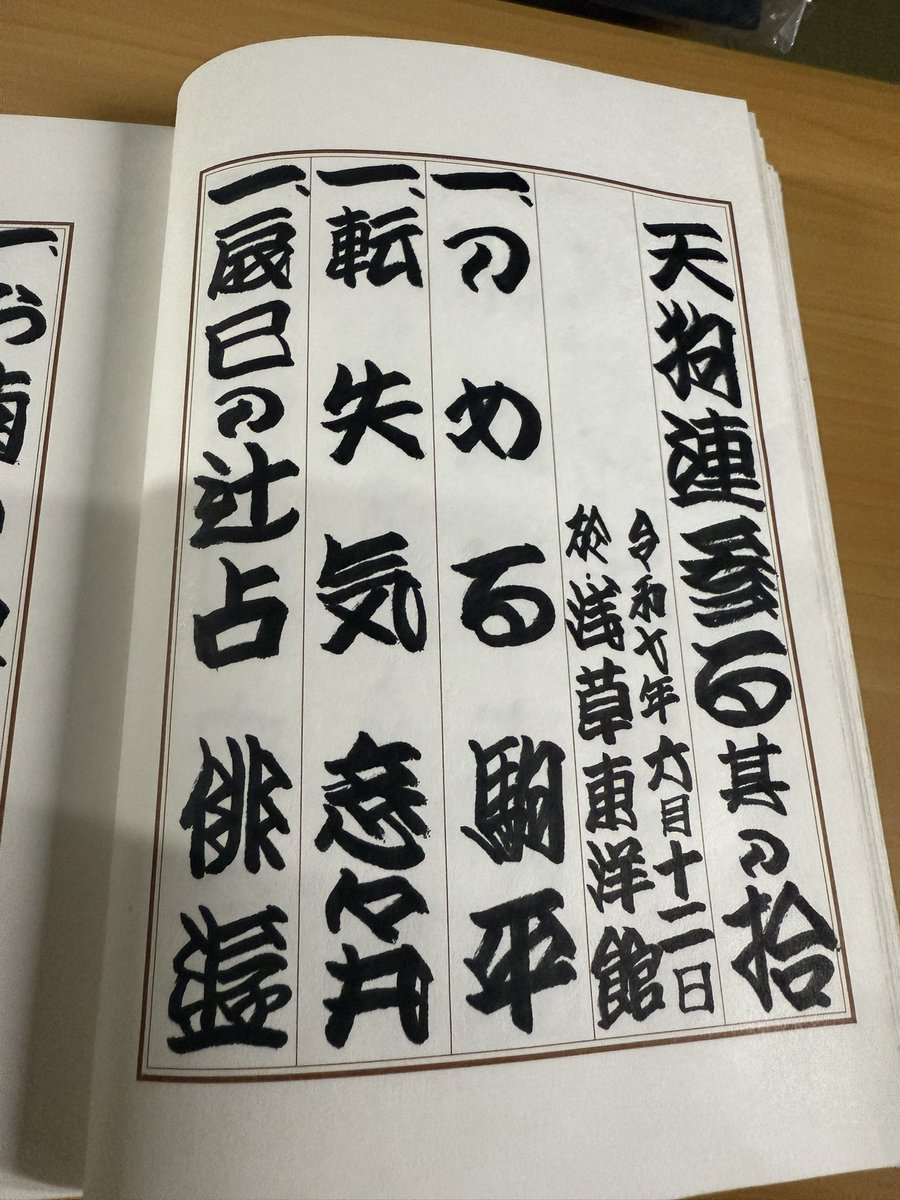 天狗連参る其の拾
令和七年六月十二日
於:浅草東洋館
一、のめる 駒平
一、転失気
一、辰巳の辻占
一、お